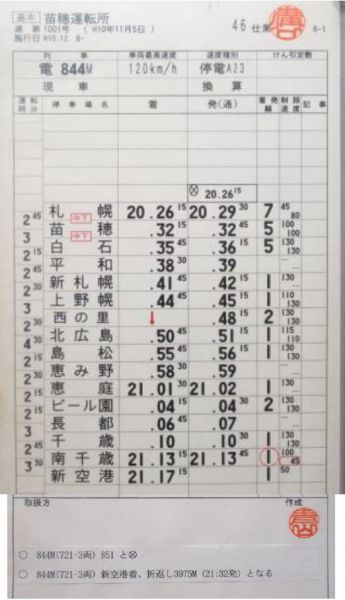 基本 苗穂運転所 46 仕業
達 第 1001号 ( H10年11月5日 ) 6-1
施行日 H10.12. 8-
列車 車両最高速度 速度種別 けん引定数
電 844M 120km/h 停電A23
現車 換算
運転時分 停車場名 着 発(通) 着発線 制限速度 記事
⊗ 20.26 15
札幌 中下 20.26 15 20.29 30 7 45 80
2 45 苗穂 中下 .32 15 .32 45 5 100 100
3 白石 .35 45 .36 15 5 130 130
2 15 平和 .38 30 .39
新札幌 .41 45 .42 15 1 130
上野幌 .44 45 .45 15 1 110 130
西の里 ↓ .48 15 2 130 130
北広島 .50 45 .51 15 1 115 110
島松 .55 45 .56 15 1 130 130
恵み野 .58 30 .59
恵庭 21.01 30 21.02 1 130
ビール園 .04 15 .04 30 2 130 130
長都 .06 45 .07
千歳 .10 .10 30 1 130 130
南千歳 21.13 15 21.13 45 1 100 45
3 30 新空港 21.17 15 1 50
取扱方 作成
○ 844M(721-3両) B51 と⊗
○ 844M(721-3両) 新空港着、折返し3975M (21:32発) となる